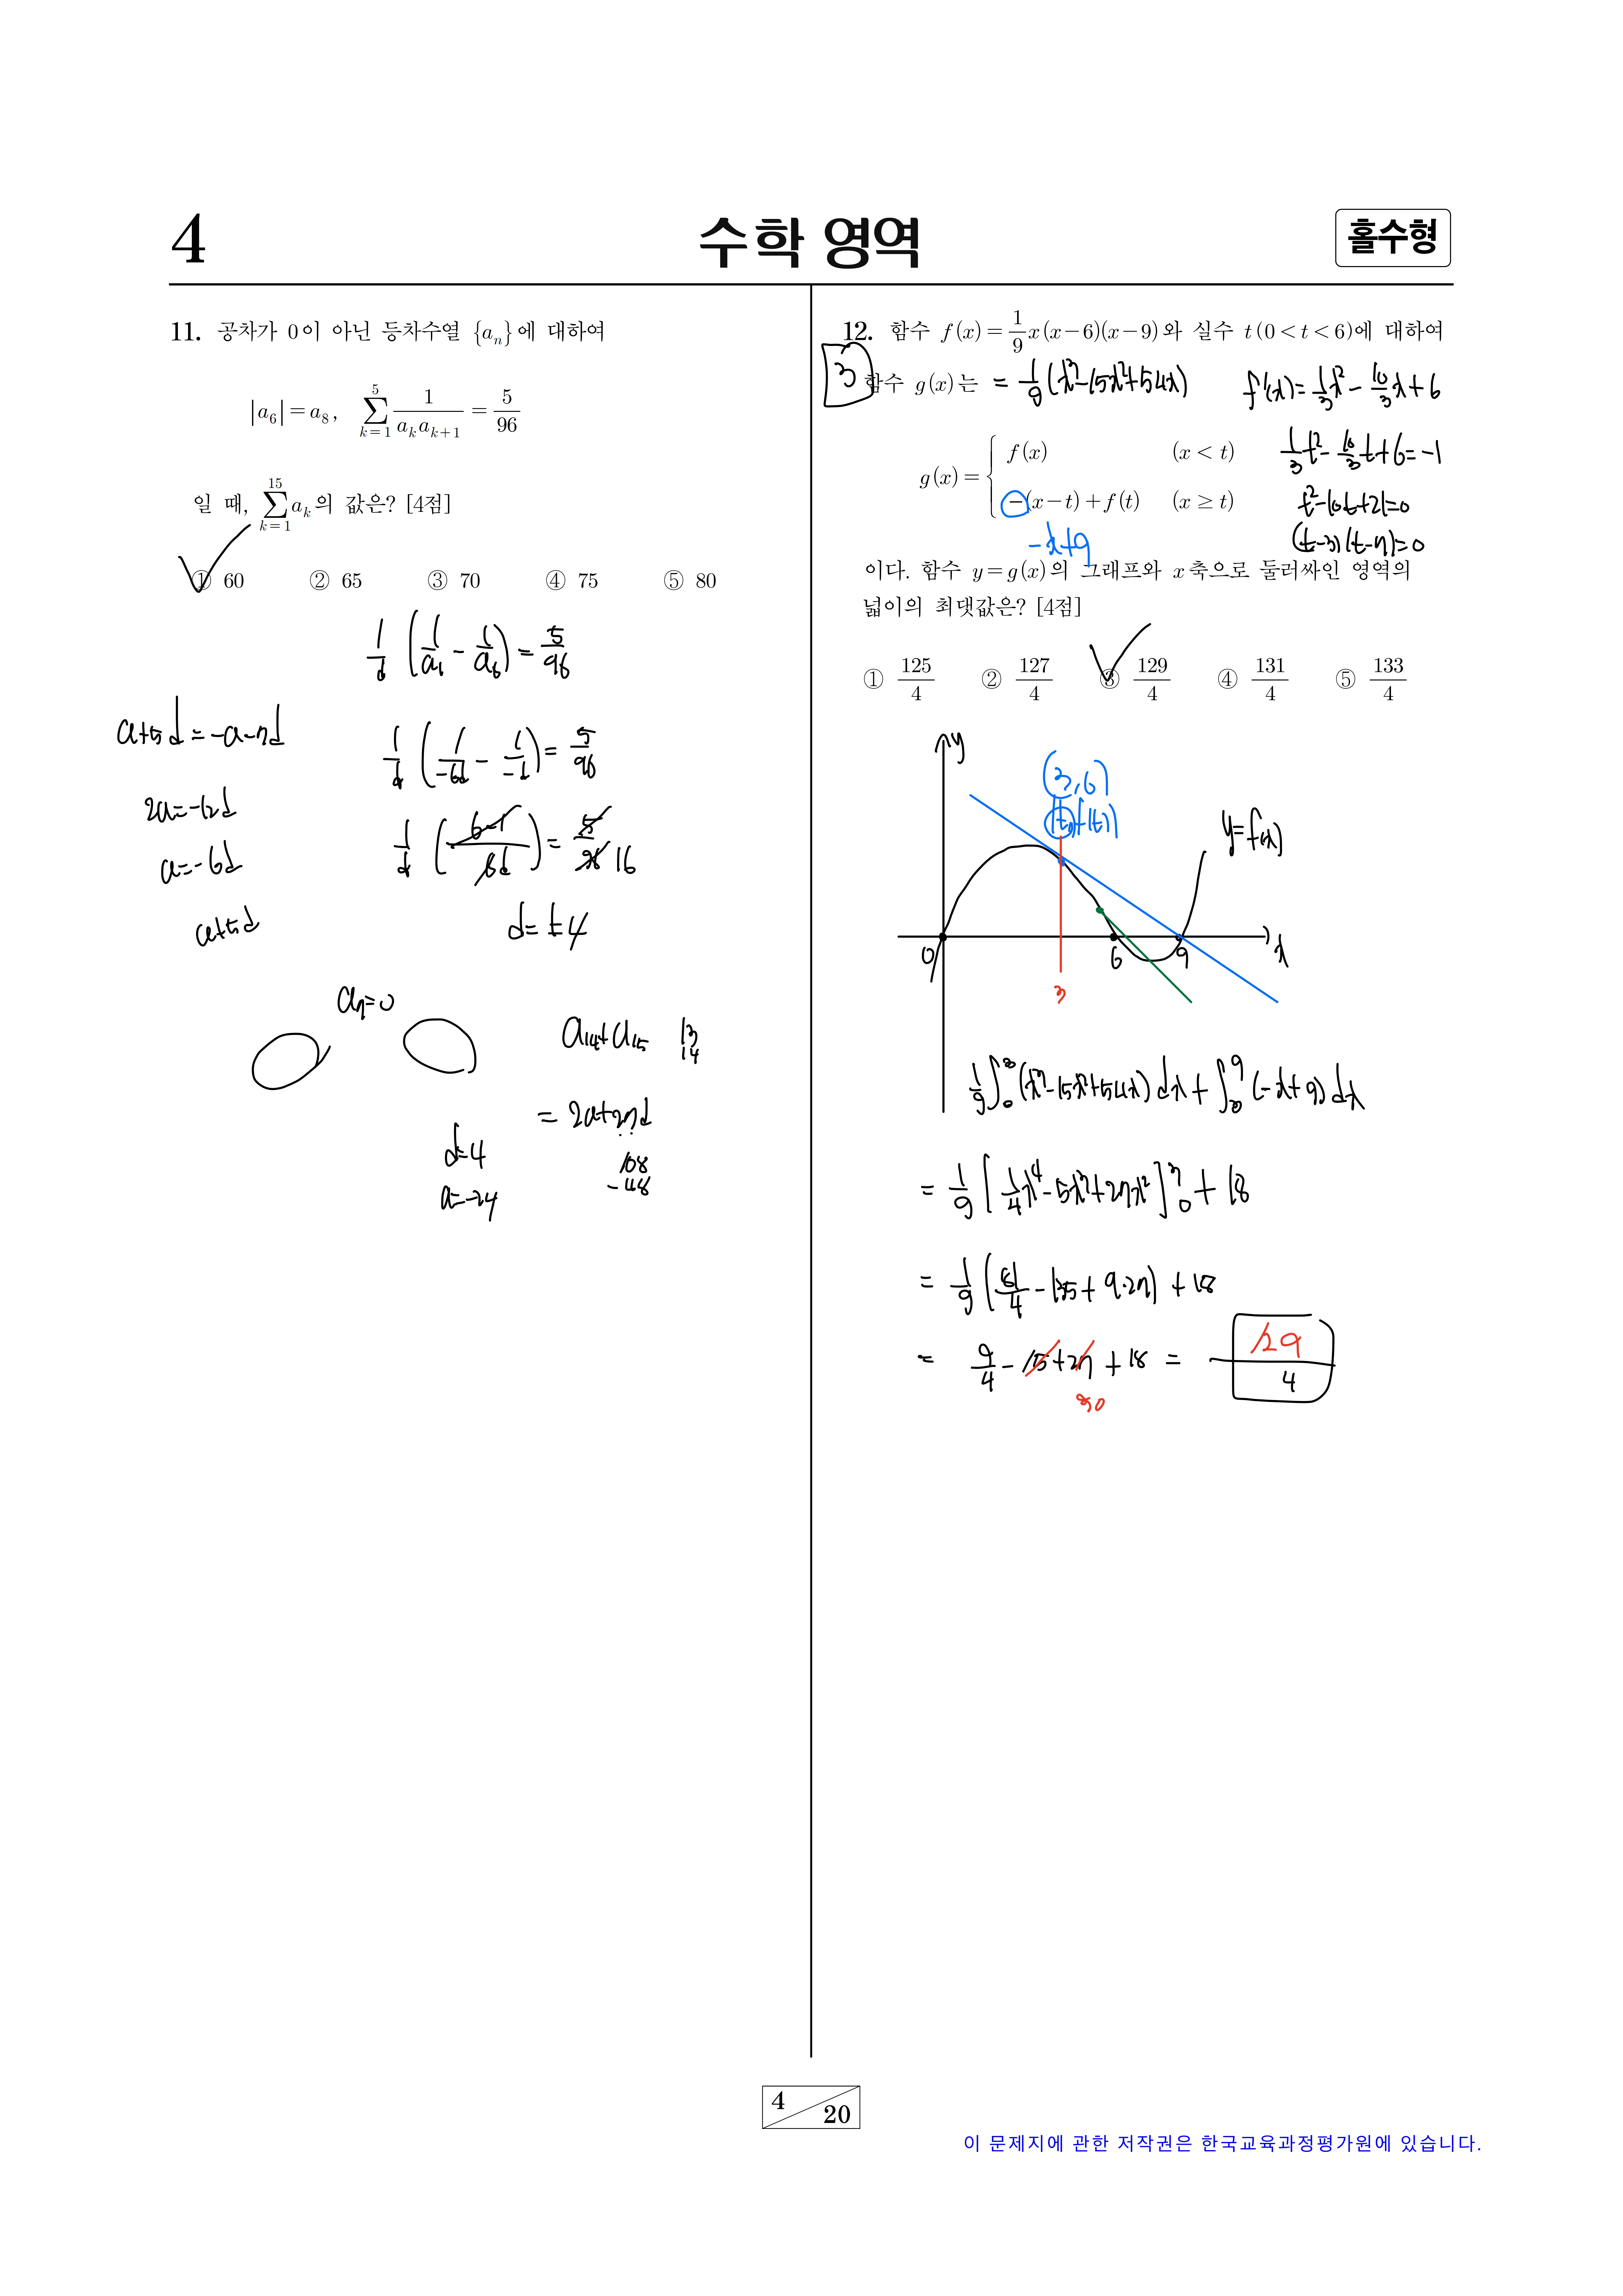 4
수학 영역
홀수형
11. 공차가 0이 아닌 등차수열 {aₙ}에 대하여
|a₆| = a₈, ∑_{k=1}^{5} 1/(aₖaₖ₊₁) = 5/96
일 때, ∑_{k=1}^{15} aₖ의 값은? [4점]
① 60 ② 65 ③ 70 ④ 75 ⑤ 80
1/d (1/a₁ - 1/a₆) = 5/96
a+5d = -a-7d
1/d (1/-6d - 1/-d) = 5/96
2a = -12d
1/d ((6-1)/6d) = 5/96 16
a = -6d
a+5d
d = ±4
a₇=0
a₁₄+a₁₅ 13
14
= 2a+27d
d=4
108
-48
a=-24
12. 함수 f(x) = 1/9 x(x-6)(x-9)와 실수 t(0 < t < 6)에 대하여
3
함수 g(x)는 = 1/9 (x³-15x²+54x) f'(x) = 1/3 x² - 10/3 x + 6
g(x) = { f(x) (x < t)
-(x-t)+f(t) (x ≥ t)
1/3 t² - 10/3 t + 6 = -1
t²-10t+21=0
(t-3)(t-7)=0
-x+9
이다. 함수 y = g(x)의 그래프와 x축으로 둘러싸인 영역의
넓이의 최댓값은? [4점]
① 125/4 ② 127/4 ③ 129/4 ④ 131/4 ⑤ 133/4
y
(3, 6)
(t, f(t))
y=f(x)
0 6 9 x
3
1/9 ∫₀³ (x³-15x²+54x) dx + ∫₃⁹ (-x+9) dx
= 1/9 [1/4 x⁴ - 5x³ + 27x²]₀³ + 18
= 1/9 (81/4 - 135 + 9·27) + 18
= 9/4 - 15 + 27 + 18 = 129/4
30
4 20
이 문제지에 관한 저작권은 한국교육과정평가원에 있습니다.